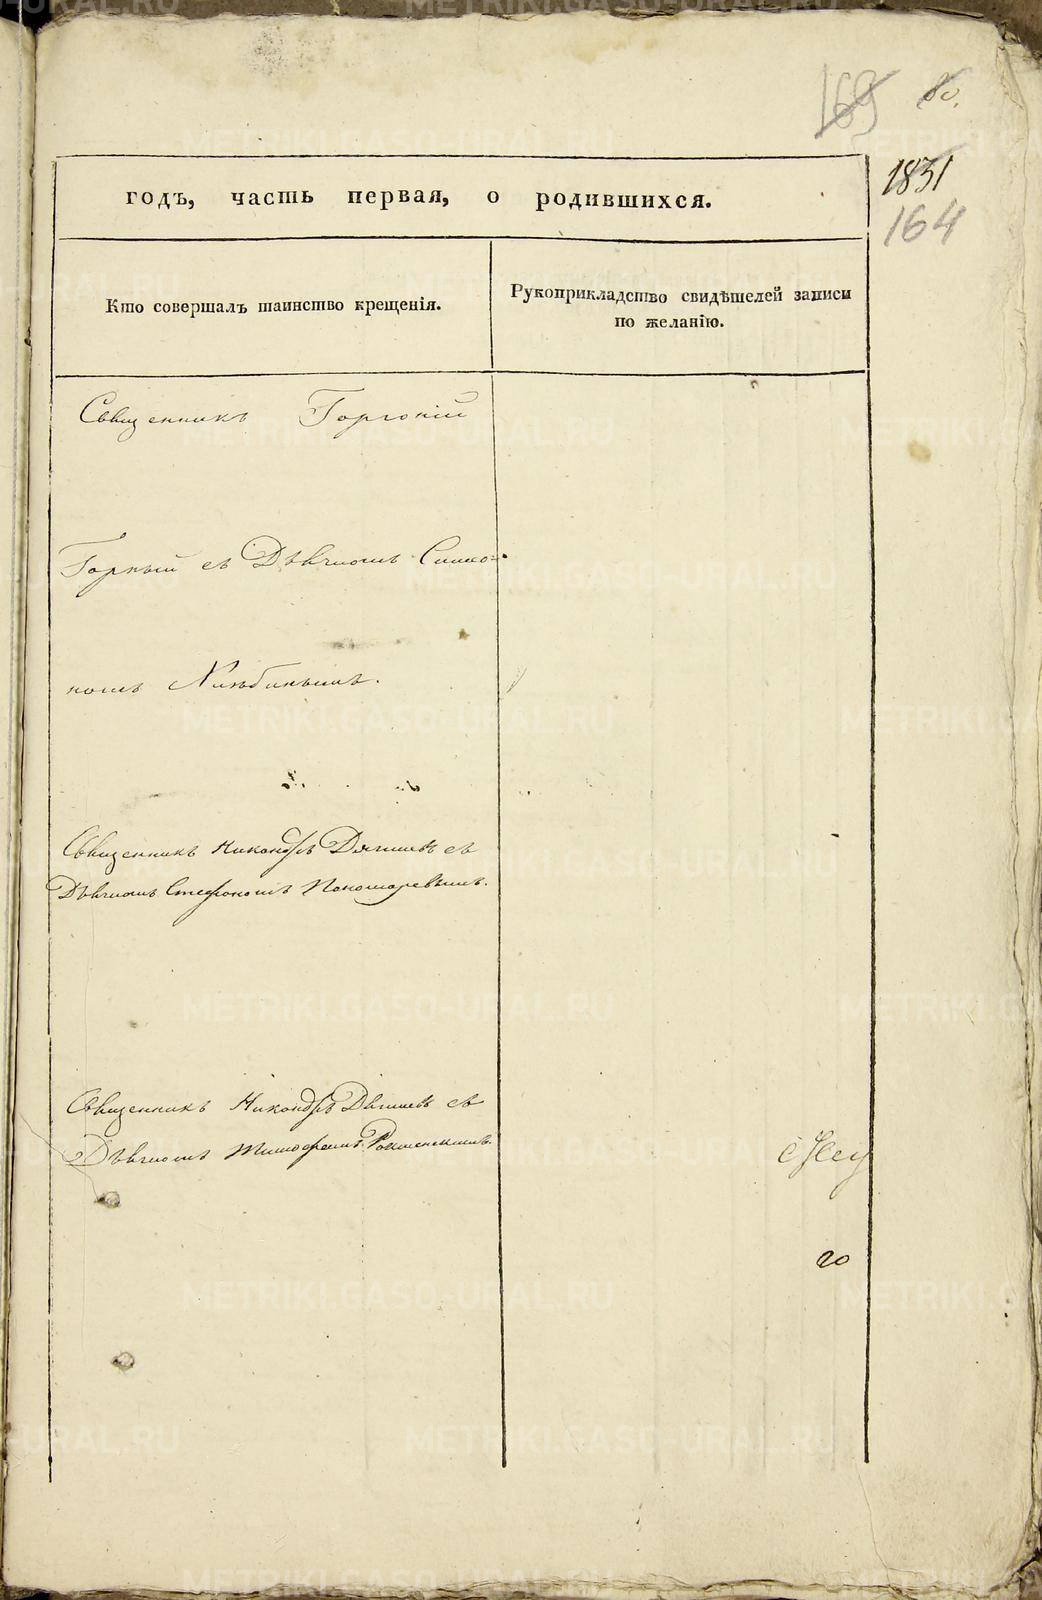 169 80.
1831
164
годъ, часть первая, о родившихся.
Кто совершалъ таинство крещенія.
Рукоприкладство свидѣтелей записи
по желанію.
Священникъ Горгоній
Горный съ Дьячкомъ Симо-
номъ Хлѣбинымъ.
Священникъ Никандръ Дягилевъ съ
Дьячкомъ Стефаномъ Пономаревымъ.
Священникъ Никандръ Дягилевъ съ
Дьячкомъ Тимофеемъ
го
METRIKI.GASO-URAL.RU